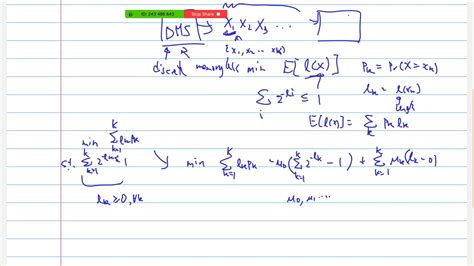 ID: 243 486 843 Stop Share
DMS → X₁ X₂ X₃ ...
{x₁, x₂ ... xₖ}
discrete memoryless min E[l(X)] Pₖ = Pr(X = xₖ)
lₖ = l(xₖ)
length
∑ᵢ 2^{-lᵢ} ≤ 1
E[l(x)] = ∑ₖ Pₖ lₖ
min ∑_{k=1}^{K} lₖPₖ
s.t. ∑_{k=1}^{K} 2^{-lₖ} ≤ 1 ↘ min ∑_{k=1}^{K} lₖPₖ - μ₀(∑_{k=1}^{K} 2^{-lₖ} - 1) + ∑_{k=1}^{K} μₖ(lₖ - 0)
lₖ ≥ 0, ∀k μ₀, μ₁ ....